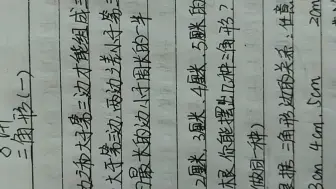 三角形(一)
边之和大于第三边才能组成三
大于第三边,两边之差小于第三
最长的边小于周长的一半
2厘米、3厘米、4厘米、5厘米的
根,你能摆出几种三角形?
做同一种)
根据三角形边的关系,任意
cm 4cm, 5cm 2cm